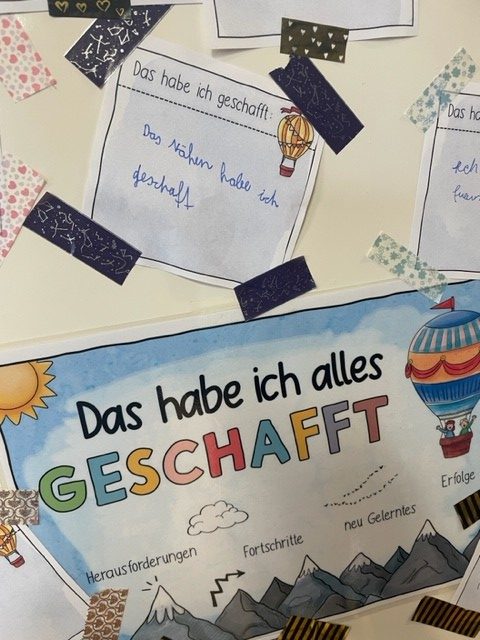 Das habe ich geschafft:
Das Nähen habe ich
geschaft
Das ha
Das habe ich alles
GESCHAFFT
Herausforderungen
Fortschritte
neu Gelerntes
Erfolge